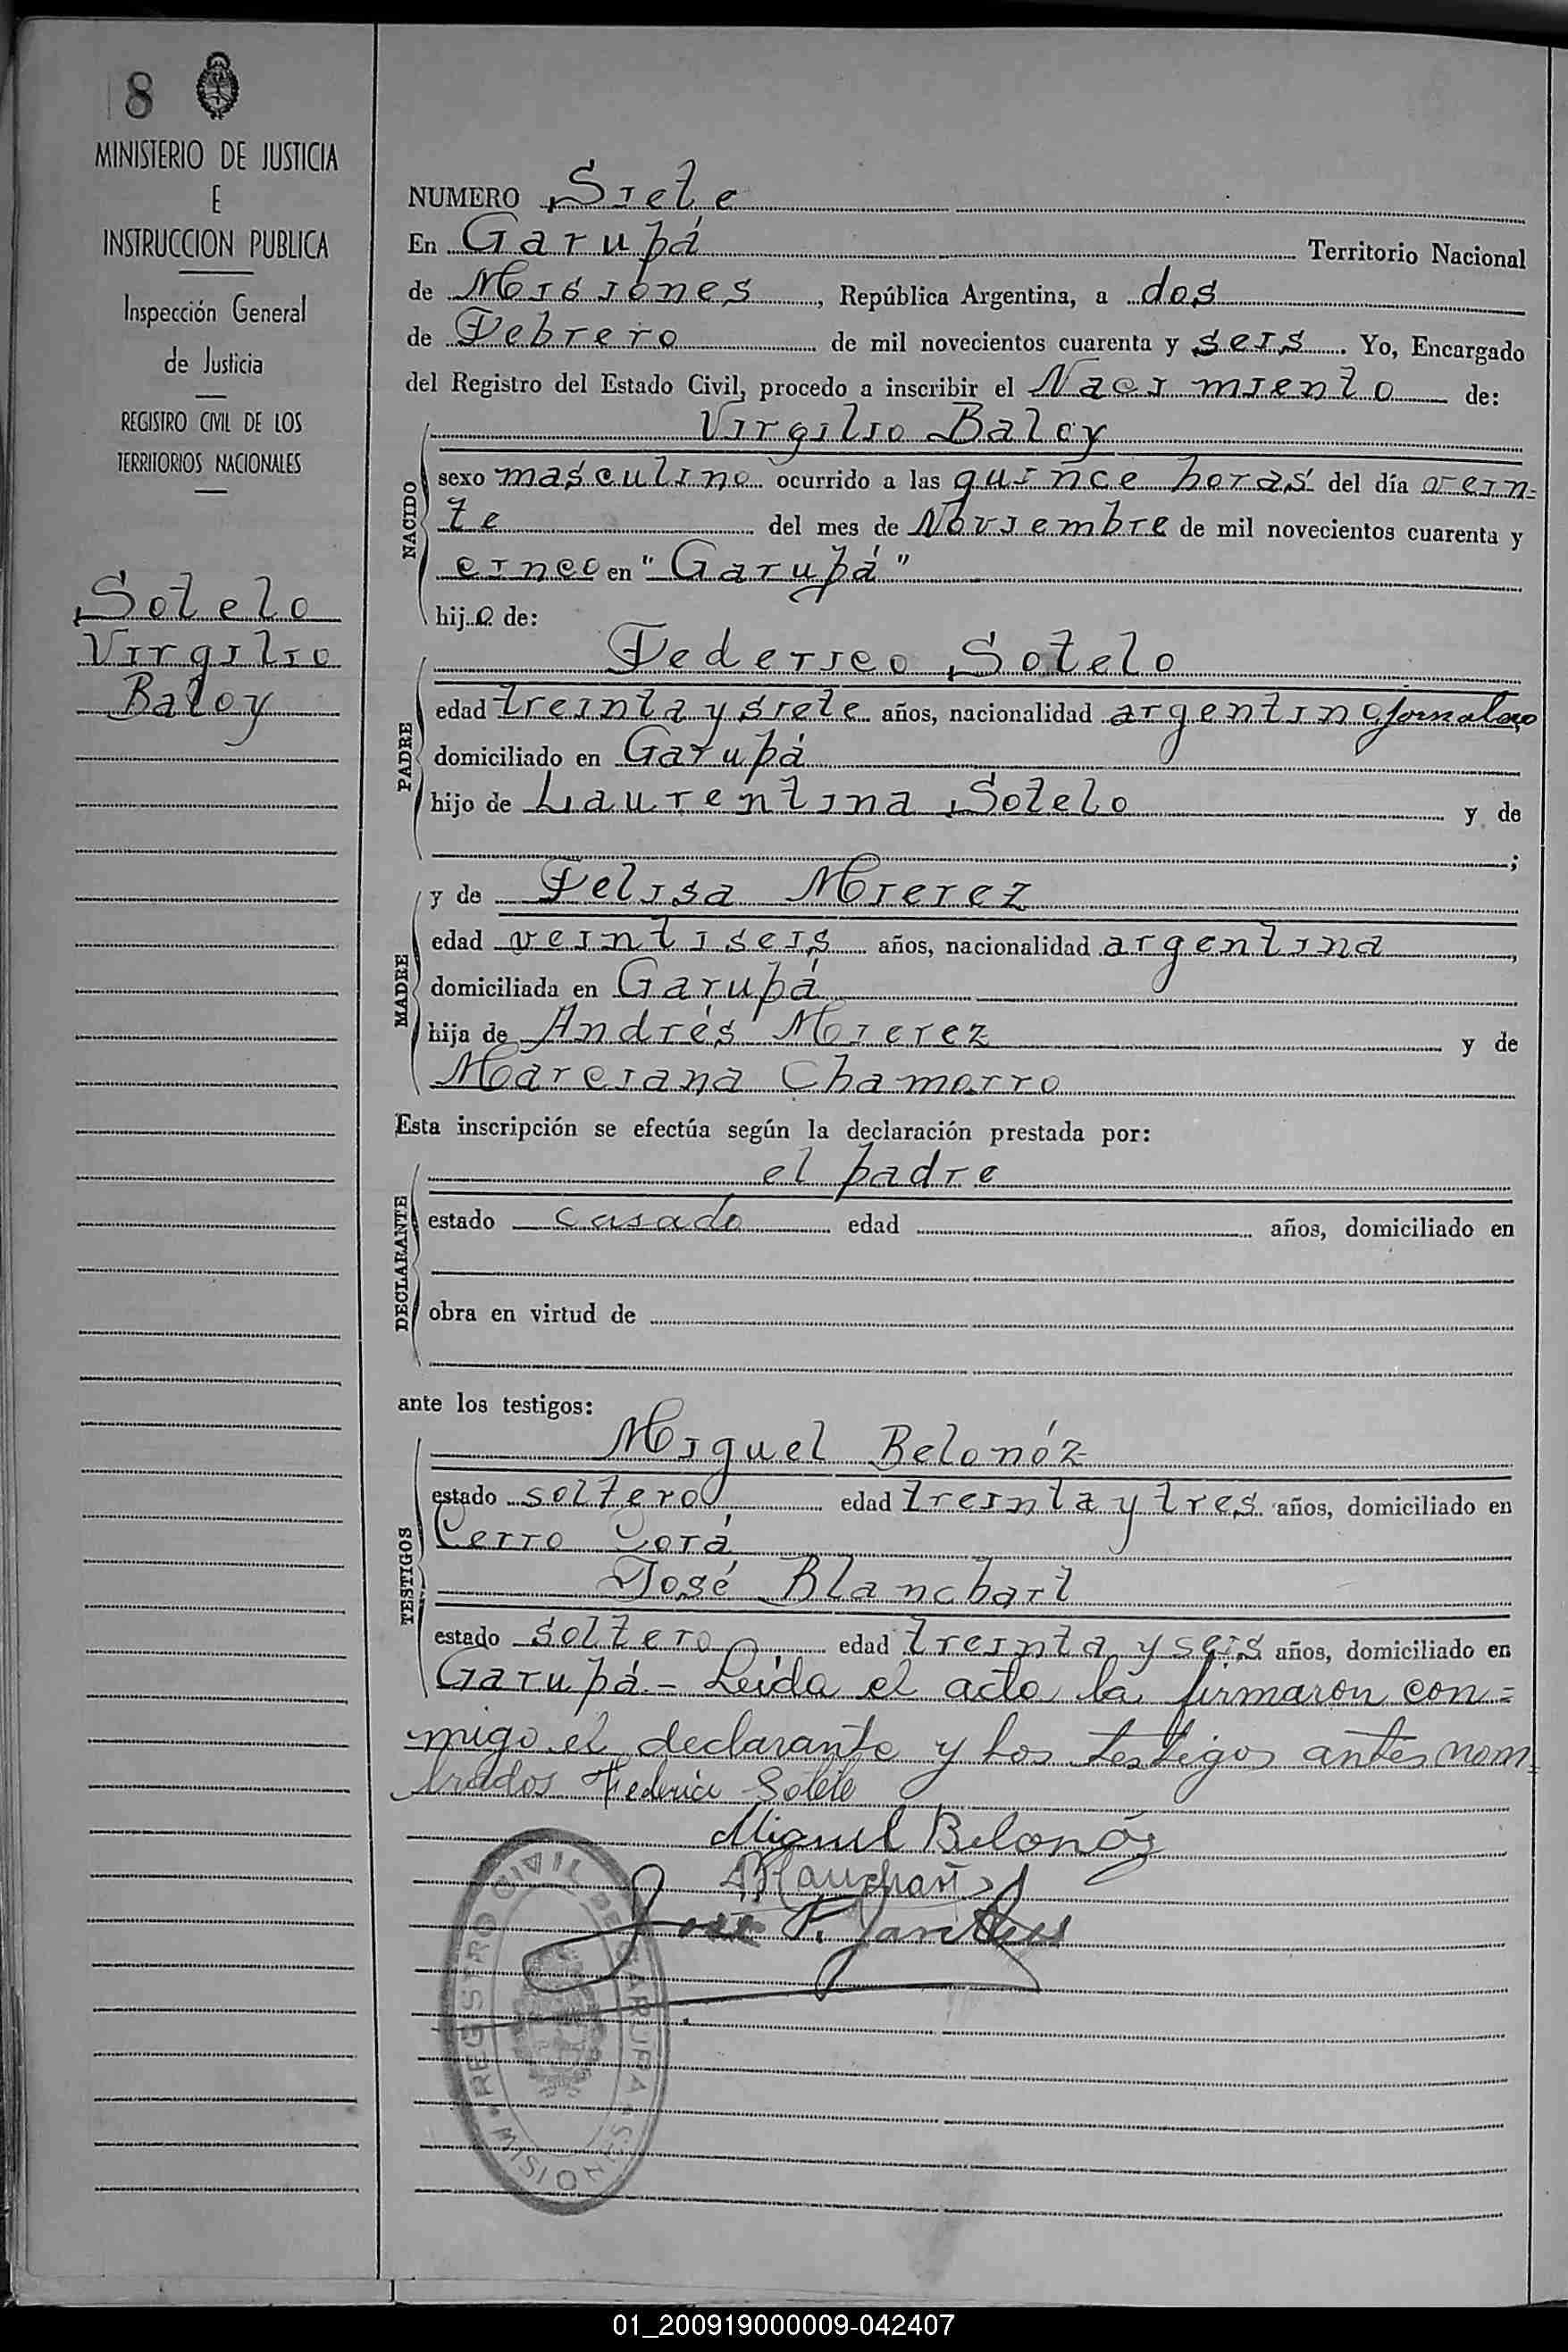 8
MINISTERIO DE JUSTICIA
E
INSTRUCCION PUBLICA
Inspección General
de Justicia
REGISTRO CIVIL DE LOS
TERRITORIOS NACIONALES
Sotelo
Virgilio
Baloy
NUMERO Siete
En Garupá Territorio Nacional
de Misiones, República Argentina, a dos
de Febrero de mil novecientos cuarenta y seis. Yo, Encargado
del Registro del Estado Civil, procedo a inscribir el Nacimiento de:
Virgilio Baloy
NACIDO
sexo masculino ocurrido a las quince horas del día vein=
te del mes de Noviembre de mil novecientos cuarenta y
cinco en "Garupá"
hijo de:
Federico Sotelo
PADRE
edad treinta y siete años, nacionalidad argentino jornalero
domiciliado en Garupá
hijo de Laurentina Sotelo y de
;
y de Felisa Mierez
MADRE
edad veintiseis años, nacionalidad argentina,
domiciliada en Garupá
hija de Andrés Mierez y de
Marciana Chamorro
Esta inscripción se efectúa según la declaración prestada por:
el padre
DECLARANTE
estado casado edad años, domiciliado en
obra en virtud de
ante los testigos:
Miguel Belonóz
TESTIGOS
estado soltero edad treinta y tres años, domiciliado en
Cerro Corá
José Blanchart
estado soltero edad treinta y seis años, domiciliado en
Garupá.- Leída el acto la firmaron con=
migo el declarante y los testigos antes nom=
brados Federico Sotelo
Miguel Belonóz
Blanchart
Jose F.
REGISTRO CIVIL DE GARUPA
MISIONES
01_200919000009-042407